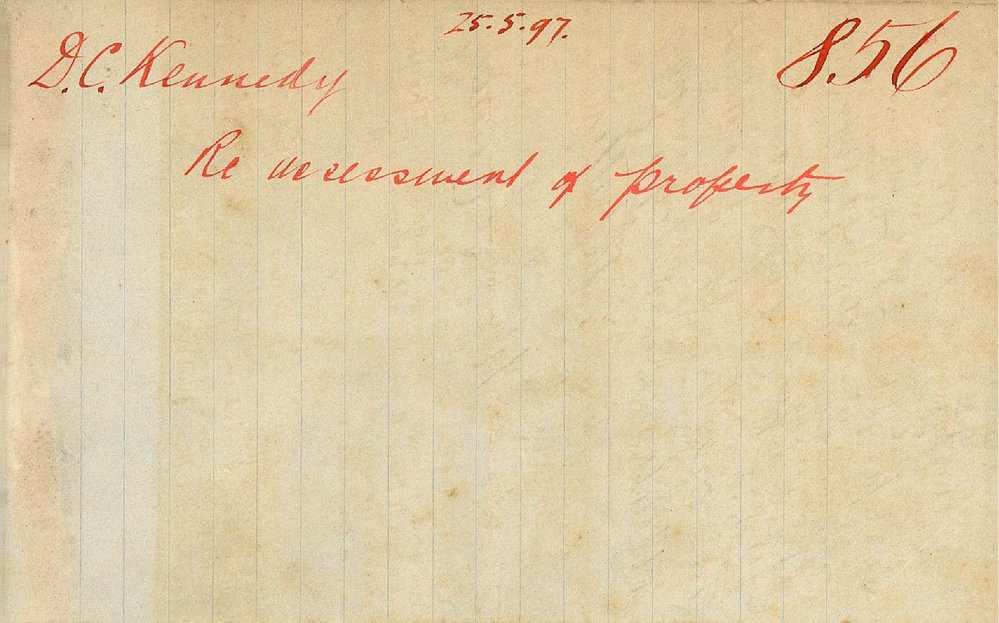 25.5.97.
D.C. Kennedy
8.56
Re assessment of property